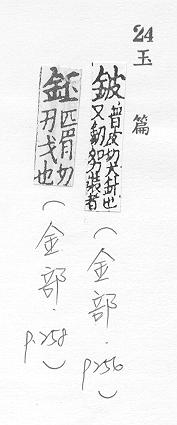 24
玉篇
鈹 普皮切大針也
又劍如刀裝者
(金部. p.256)
鉟 匹眉切
刃戈也
(金部. p.258)